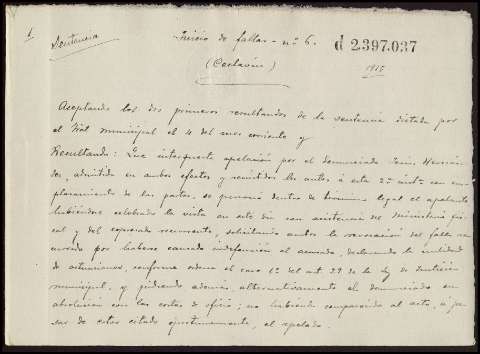 Sentencia
Juicio de faltas - nº 6.
d 2.397.037
(Ceclavín)
1915
Aceptando los dos primeros resultandos de la sentencia dictada por
el Tral municipal el 4 del mes corriente y
Resultando: Que interpuesta apelación por el denunciado
admitida en ambos efectos y remitidos los autos a esta 2ª inst.ª con em-
plazamiento de las partes, se personó dentro de termino legal el apelante
habiendose celebrado la vista en este dia con asistencia del Ministerio fis-
cal y del expresado recurrente, solicitando ambos la revocación del fallo re-
currido por haberse causado indefensión al acusado, declarando la nulidad
de actuaciones, conforme ordena el caso 1º del art. 29 de la ley de Justicia
municipal, y pidiendo además, alternativamente el denunciado su
absolución con las costas de oficio; no habiendo comparecido al acto, a pe-
sar de estar citado oportunamente, el apelado.